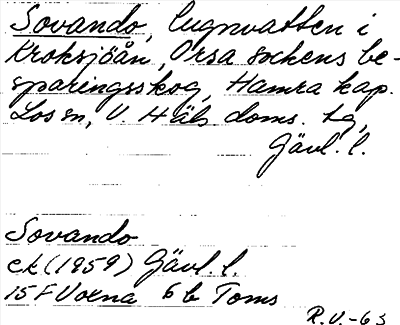 Sovando, lugnvatten i
Kroksjöån, Orsa sockens be-
sparingsskog, Hamra kap.
Los sn, V. Häls doms. Lg,
Gävl. l.
Sovando
ek (1959) Gävl. l.
15 F Voxna 6 b Toms
R.V.-63